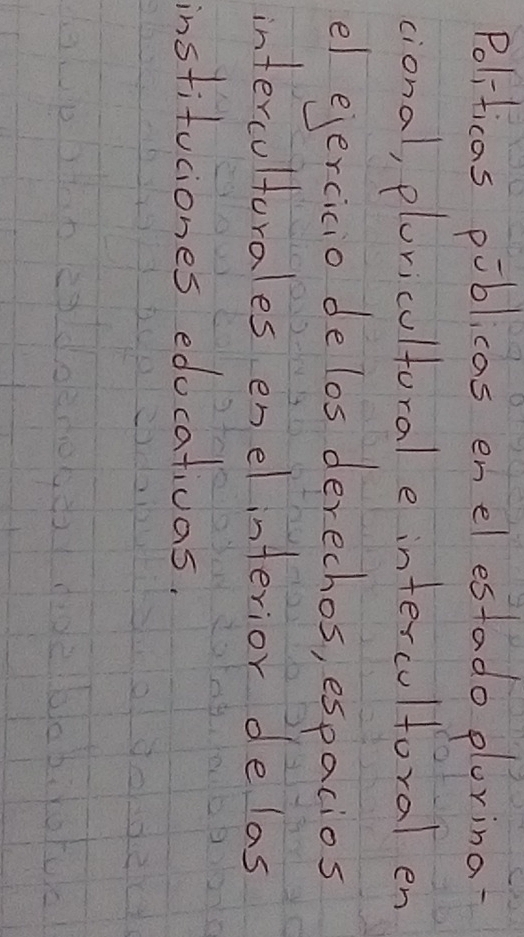 Políticas públicas en el estado plurina-
cional, pluricultural e intercultural en
el ejercicio de los derechos, espacios
interculturales en el interior de las
instituciones educativas.